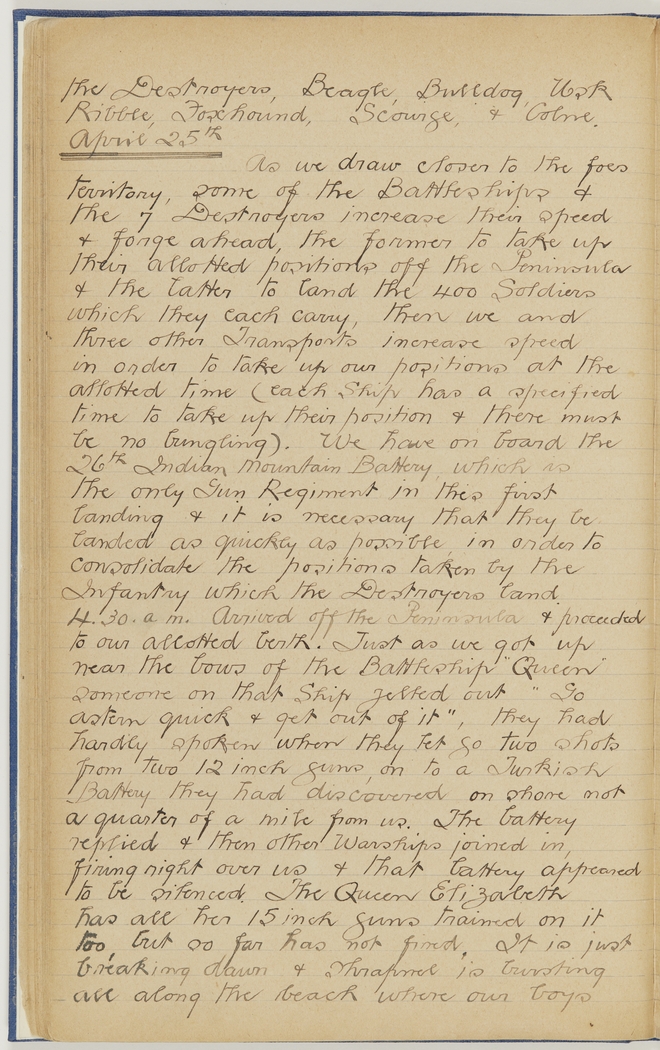 the Destroyers, Beagle, Bulldog, Usk
Ribble, Foxhound, Scourge, & Colne.
April 25th
As we draw closer to the foes
territory, some of the Battleships &
the 7 Destroyers increase their speed
& forge ahead, the former to take up
their allotted positions off the Peninsula
& the latter to land the 400 Soldiers
which they each carry, then we and
three other Transports increase speed
in order to take up our positions at the
allotted time (each Ship has a specified
time to take up their position & there must
be no bungling). We have on board the
26th Indian Mountain Battery, which is
the only Gun Regiment in this first
landing & it is necessary that they be
landed as quickly as possible, in order to
consolidate the positions taken by the
Infantry which the Destroyers land
4.30.a.m. Arrived off the Peninsula & proceeded
to our allotted berth. Just as we got up
near the bows of the Battleship "Queen"
someone on that Ship yelled out "Go
astern quick & get out of it", they had
hardly spoken when they let go two shots
from two 12 inch guns, on to a Turkish
Battery they had discovered on shore not
a quarter of a mile from us. The battery
replied & then other Warships joined in,
firing right over us & that battery appeared
to be silenced. The Queen Elizabeth
has all her 15 inch guns trained on it
too but so far has not fired. It is just
breaking dawn & shrapnel is bursting
all along the beach where our boys